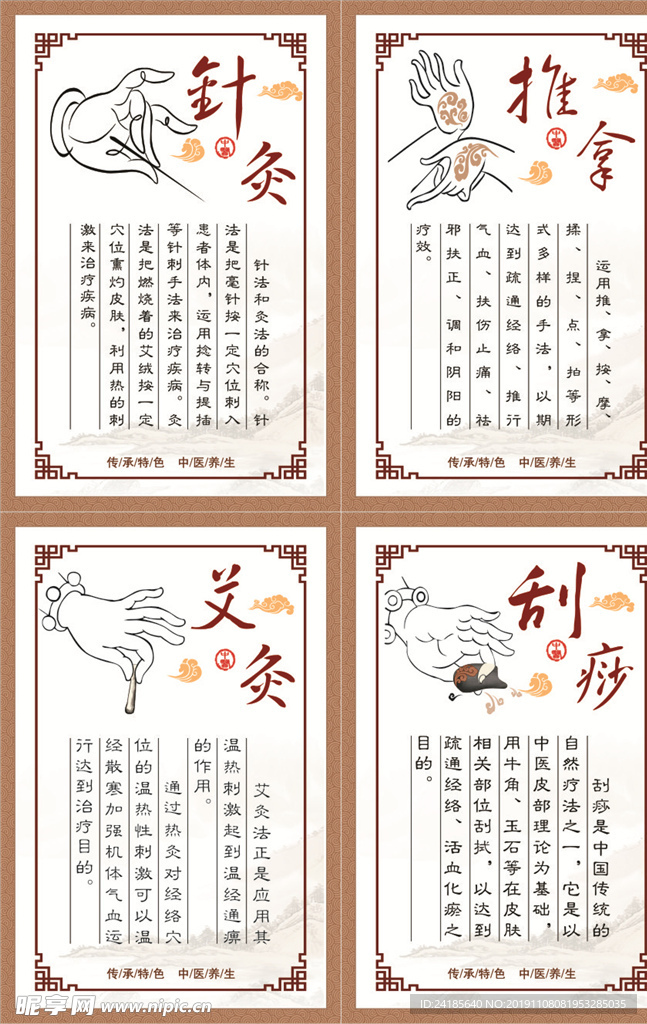 針灸
中医
针法和灸法的合称。针
法是把毫针按一定穴位刺入
患者体内，运用捻转与提插
等针刺手法来治疗疾病。灸
法是把燃烧着的艾绒按一定
穴位熏灼皮肤，利用热的刺
激来治疗疾病。
传/承/特/色 中/医/养/生
推拿
中医
运用推、拿、按、摩、
揉、捏、点、拍等形
式多样的手法，以期
达到疏通经络、推行
气血、扶伤止痛、祛
邪扶正、调和阴阳的
疗效。
传/承/特/色 中/医/养/生
艾灸
中医
艾灸法正是应用其
温热刺激起到温经通痹
的作用。
通过热灸对经络穴
位的温热性刺激可以温
经散寒加强机体气血运
行达到治疗目的。
传/承/特/色 中/医/养/生
刮痧
中医
刮痧是中国传统的
自然疗法之一，它是以
中医皮部理论为基础，
用牛角、玉石等在皮肤
相关部位刮拭，以达到
疏通经络、活血化瘀之
目的。
传/承/特/色 中/医/养/生
昵享网 www.nipic.cn
ID:24185640 NO:20191108081953285035